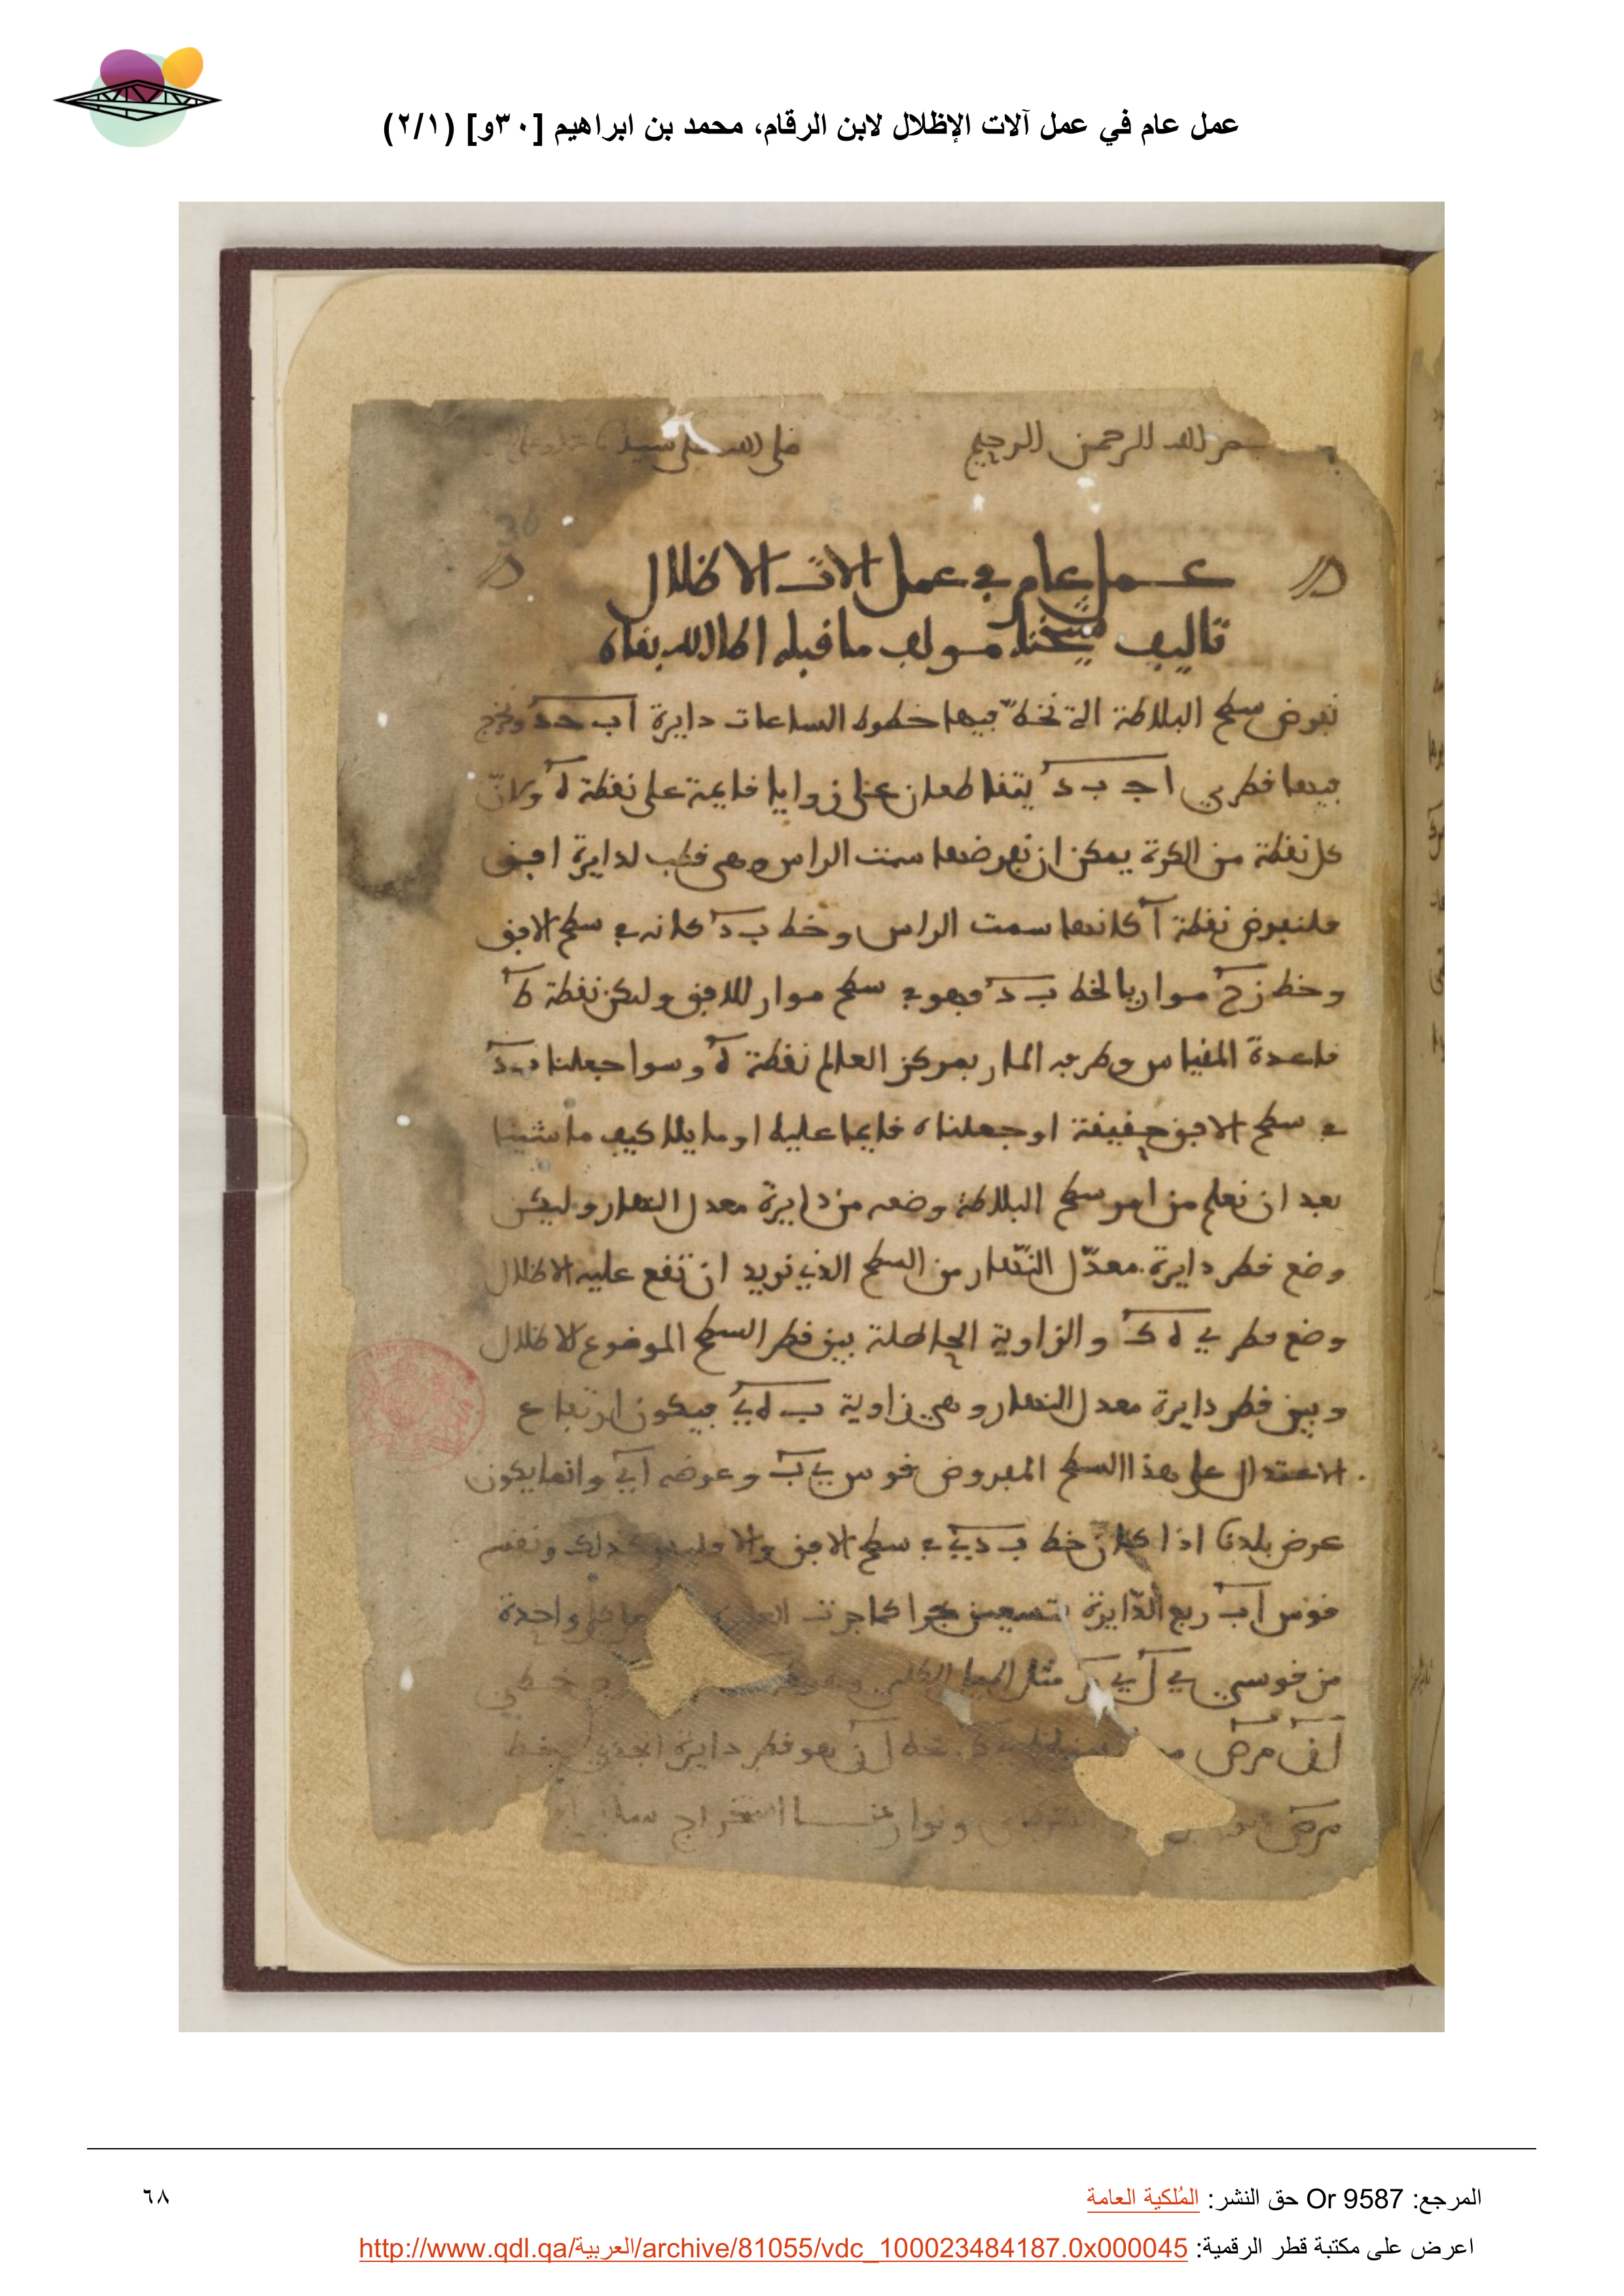 عمل عام في عمل آلات الإظلال لابن الرقام، محمد بن ابراهيم [٣٠و] (٢/١)
بسم الله الرحمن الرحيم صلى الله على سيدنا
30
عمل عام في عمل الات الاظلال
تاليف شيخنا مولف ما قبله اطال الله بقاه
نفرض سطح البلاطة التي نخط فيها خطوط الساعات دايرة اب جد ونخرج
فيها قطري اج ب د يتقاطعان على زوايا قايمة على نقطة ه ولان
كل نقطة من الكرة يمكن ان نفرضها سمت الراس وهي قطب لدايرة افق
فلنفرض نقطة ا كانها سمت الراس وخط ب د كانه في سطح الافق
وخط زح موازيا لخط ب د فهو في سطح مواز للافق وليكن نقطة ط
قاعدة المقياس وطرفه المار بمركز العالم نقطة ه وسوا جعلنا ب د
في سطح الافق حقيقة او جعلناه قايما عليه او مايلا كيف ما شينا
بعد ان نعلم من امر سطح البلاطة وضعه من دايرة معدل النهار وليكن
وضع قطر دايرة معدّل النّهار من السطح الذي نريد ان تقع عليه الاظلال
وضع قطر ي ه ك والزاوية الحاصلة بين قطر السطح الموضوع للاظلال
وبين قطر دايرة معدل النهار وهي زاوية ب ه ي فيكون ارتفاع
الاعتدال على هذا السطح المفروض قوس ي ب وعرضه ا ي وانما يكون
عرض بلدنا اذا كان خط ب د في سطح الافق والا فليس كذلك ونقسم
قوس اب ربع الدّايرة بتسعين جزا كما جرت كل واحدة
من قوسي ي ل ي م مثل الميل الكلي خطي
خط ل ن هو قطر دايرة الجدي
استخراج
المرجع: Or 9587 حق النشر: المُلكية العامة
٦٨
اعرض على مكتبة قطر الرقمية: http://www.qdl.qa/العربية/archive/81055/vdc_100023484187.0x000045